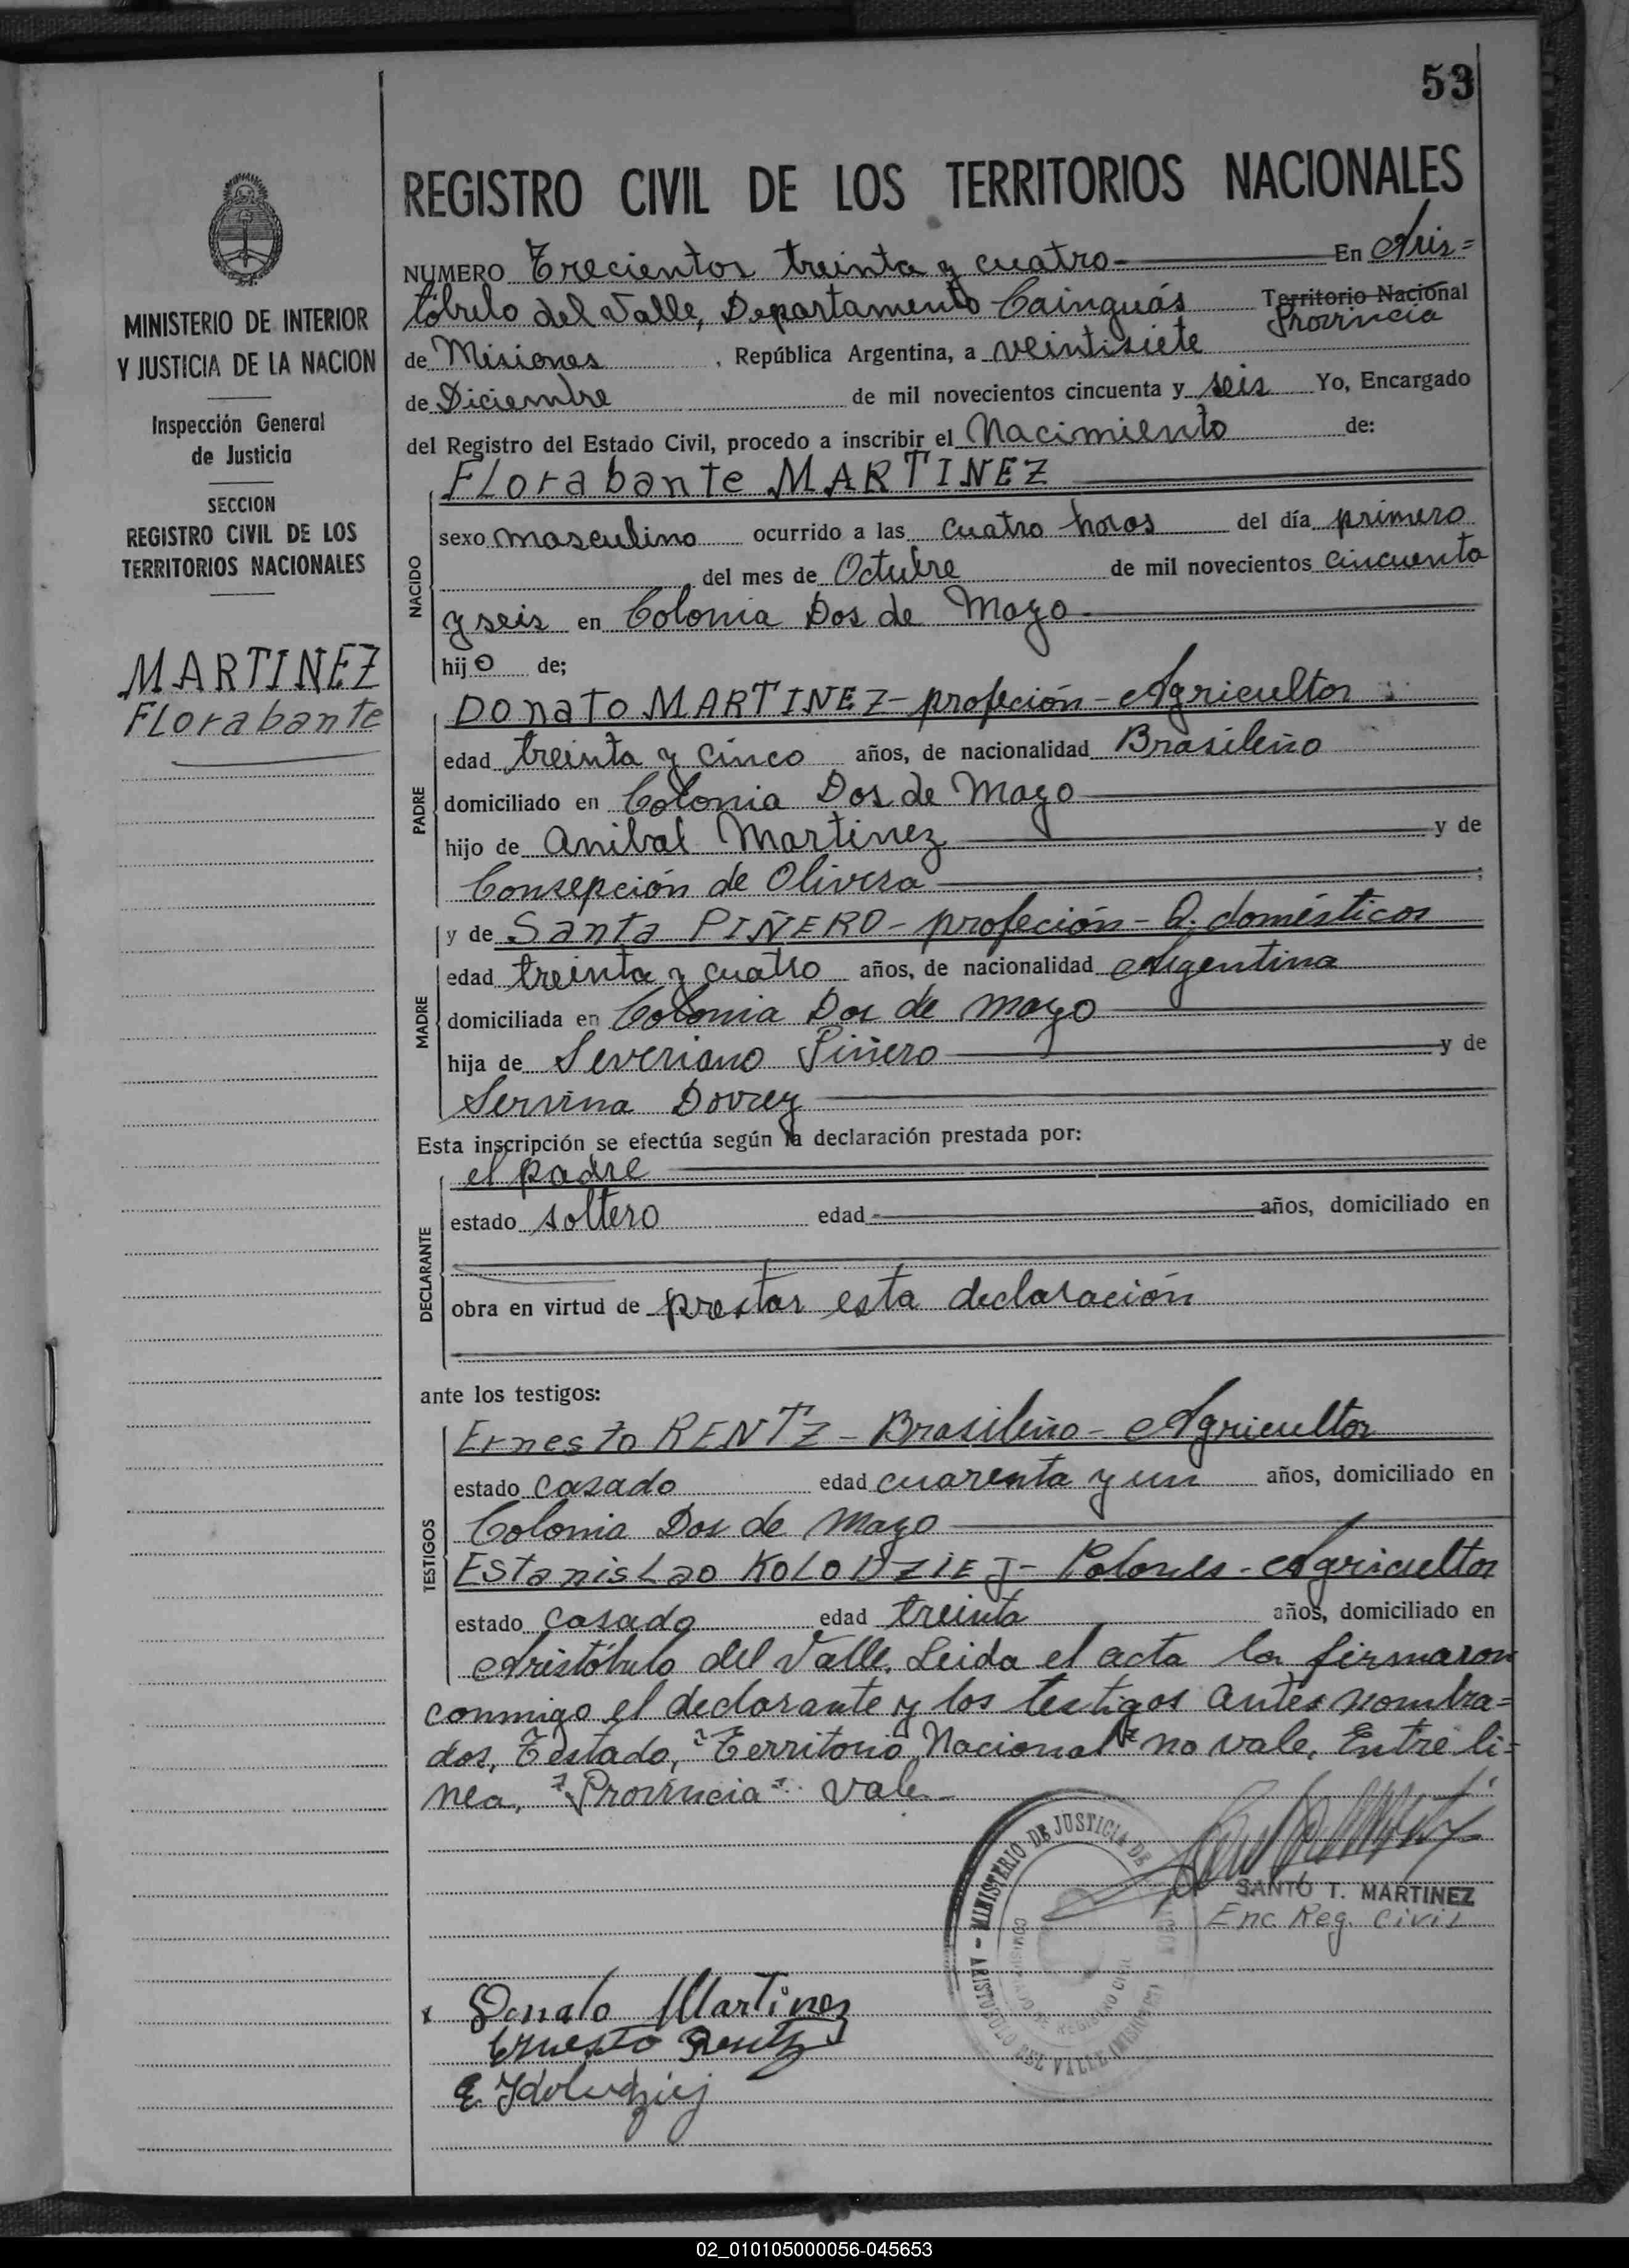 53
REGISTRO CIVIL DE LOS TERRITORIOS NACIONALES
MINISTERIO DE INTERIOR
Y JUSTICIA DE LA NACION
Inspección General
de Justicia
SECCION
REGISTRO CIVIL DE LOS
TERRITORIOS NACIONALES
MARTINEZ
Florabante
NUMERO Trecientos treinta y cuatro En Aris=
tóbulo del Valle, Departamento Cainguás Territorio Nacional
Provincia
de Misiones, República Argentina, a veintisiete
de Diciembre de mil novecientos cincuenta y seis Yo, Encargado
del Registro del Estado Civil, procedo a inscribir el Nacimiento de:
Florabante MARTINEZ
NACIDO
sexo masculino ocurrido a las cuatro horas del día primero
del mes de Octubre de mil novecientos cincuenta
y seis en Colonia Dos de Mayo
hijo de;
PADRE
Donato MARTINEZ - profeción - Agricultor
edad treinta y cinco años, de nacionalidad Brasileño
domiciliado en Colonia Dos de Mayo
hijo de Anibal Martinez y de
Consepción de Olivera ;
MADRE
y de Santa PIÑERO - profeción - Q. domésticos
edad treinta y cuatro años, de nacionalidad Argentina
domiciliada en Colonia Dos de Mayo
hija de Severiano Piñero y de
Servina Dovrey
Esta inscripción se efectúa según la declaración prestada por:
DECLARANTE
el padre
estado soltero edad años, domiciliado en
obra en virtud de prestar esta declaración
ante los testigos:
TESTIGOS
Ernesto RENTZ - Brasileño - Agricultor
estado casado edad cuarenta y un años, domiciliado en
Colonia Dos de Mayo
Estanislao KOLODZIEJ - Polones - Agricultor
estado casado edad treinta años, domiciliado en
Aristóbulo del Valle. Leida el acta la firmaron
conmigo el declarante y los testigos antes nombra=
dos, Testado, "Territorio Nacional" no vale, Entre li=
nea, "Provincia" vale.-
SANTO T. MARTINEZ
Enc Reg. Civil
MINISTERIO DE JUSTICIA DE
ARISTOBULO DEL VALLE (MISIONES)
REGISTRO CIVIL
x Donato Martinez
Ernesto Rentz
E. Kolodziej
02_010105000056-045653